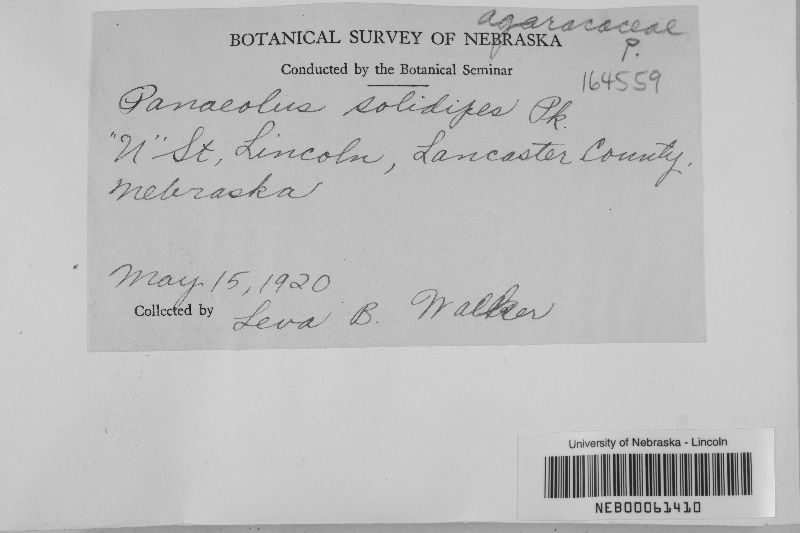 agaracaceae
BOTANICAL SURVEY OF NEBRASKA
P.
Conducted by the Botanical Seminar
164559
Panaeolus solidipes Pk.
"N" St, Lincoln, Lancaster County.
Nebraska
May 15, 1920
Collected by Leva B. Walker
University of Nebraska - Lincoln
NEB00061410